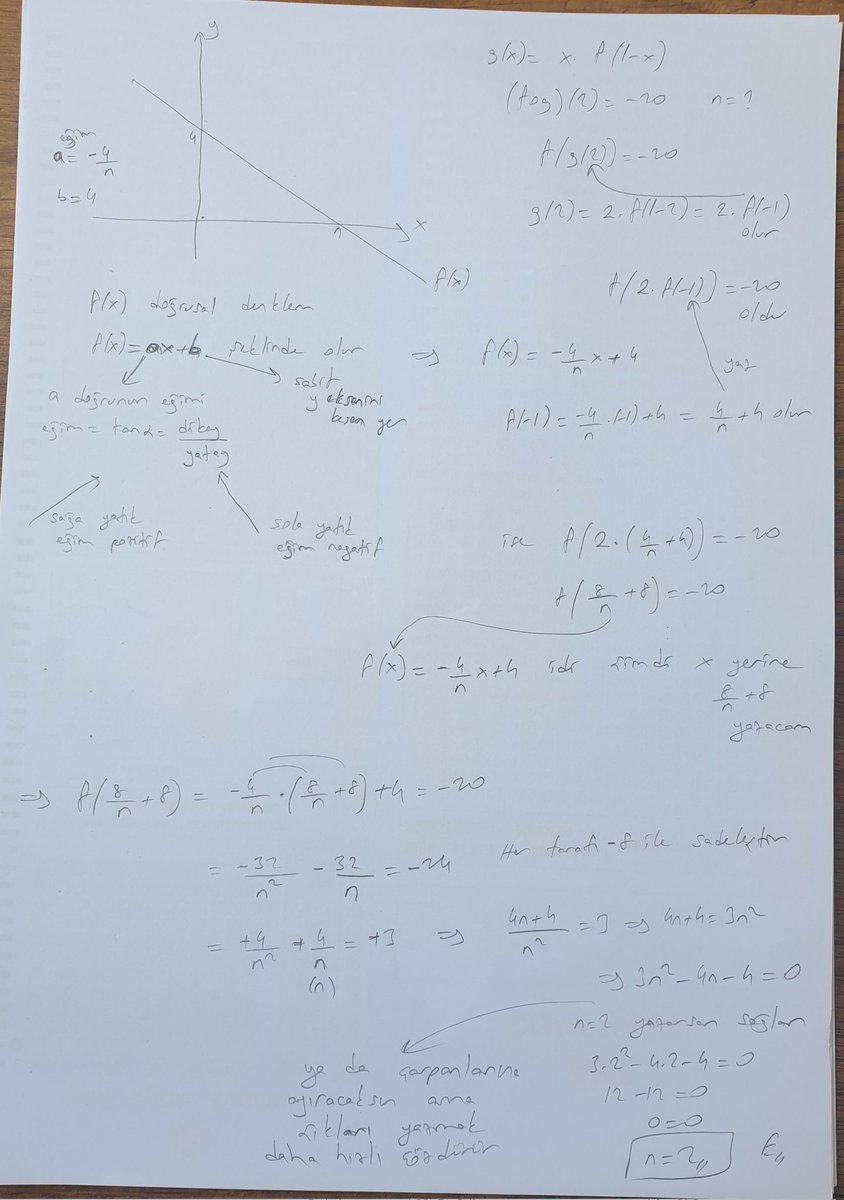 y
4
eğim
a = -4/n
b = 4
n
x
f(x)
g(x) = x. f(1-x)
(fog)(2) = -20 n = ?
f(g(2)) = -20
g(2) = 2. f(1-2) = 2. f(-1)
olur
f(2. f(-1)) = -20
oldu
yaz
f(x) doğrusal denklem
f(x) = ax+b şeklinde olur
a doğrunun eğimi
sabit
y eksenini
kesen yer
eğim = tanα = dikey/yatay
sağa yatık
eğim pozitif
sola yatık
eğim negatif
⇒ f(x) = -4/n x + 4
f(-1) = -4/n . (-1) + 4 = 4/n + 4 olur
ise f(2. (4/n + 4)) = -20
f(8/n + 8) = -20
f(x) = -4/n x + 4 idi şimdi x yerine
8/n + 8
yazacam
⇒ f(8/n + 8) = -4/n . (8/n + 8) + 4 = -20
= -32/n² - 32/n = -24 Her tarafı -8 ile sadeleştir
= +4/n² + 4/n = +3 ⇒ 4n+4/n² = 3 ⇒ 4n+4 = 3n²
(n)
⇒ 3n² - 4n - 4 = 0
n=2 yazarsan sağlar
3.2² - 4.2 - 4 = 0
12 - 12 = 0
0 = 0
n = 2,, E,,
ya da çarpanlarına
ayıracaksın ama
şıkları yazmak
daha hızlı çözdürür